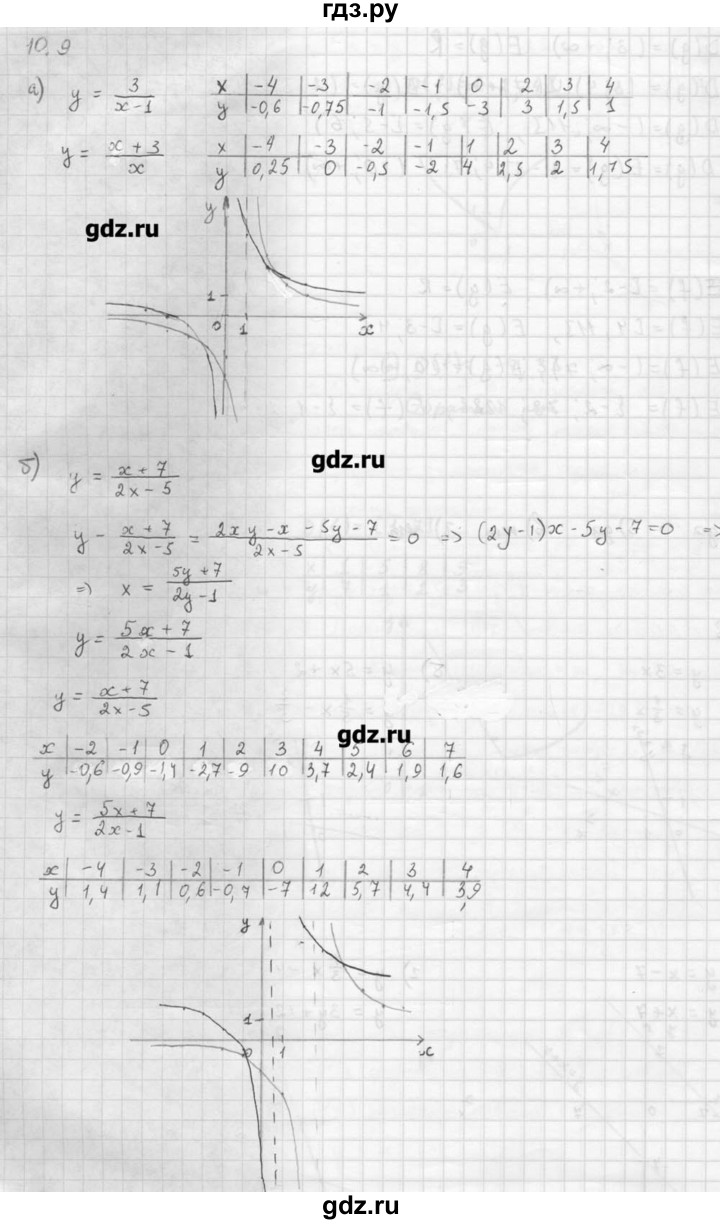 гдз.ру
10.9
а) y = 3/(x-1)
x | -4 | -3 | -2 | -1 | 0 | 2 | 3 | 4
y | -0,6 | -0,75 | -1 | -1,5 | -3 | 3 | 1,5 | 1
y = (x+3)/x
x | -4 | -3 | -2 | -1 | 1 | 2 | 3 | 4
y | 0,25 | 0 | -0,5 | -2 | 4 | 2,5 | 2 | 1,75
y
gdz.ru
1
0 1 x
gdz.ru
б) y = (x+7)/(2x-5)
y - (x+7)/(2x-5) = (2xy-x-5y-7)/(2x-5) = 0 => (2y-1)x-5y-7=0 =>
=> x = (5y+7)/(2y-1)
y = (5x+7)/(2x-1)
y = (x+7)/(2x-5)
gdz.ru
x | -2 | -1 | 0 | 1 | 2 | 3 | 4 | 5 | 6 | 7
y | -0,6 | -0,9 | -1,4 | -2,7 | -9 | 10 | 3,7 | 2,4 | 1,9 | 1,6
y = (5x+7)/(2x-1)
x | -4 | -3 | -2 | -1 | 0 | 1 | 2 | 3 | 4
y | 1,4 | 1,1 | 0,6 | -0,7 | -7 | 12 | 5,7 | 4,4 | 3,9
y
1
0 1 x
gdz.ru